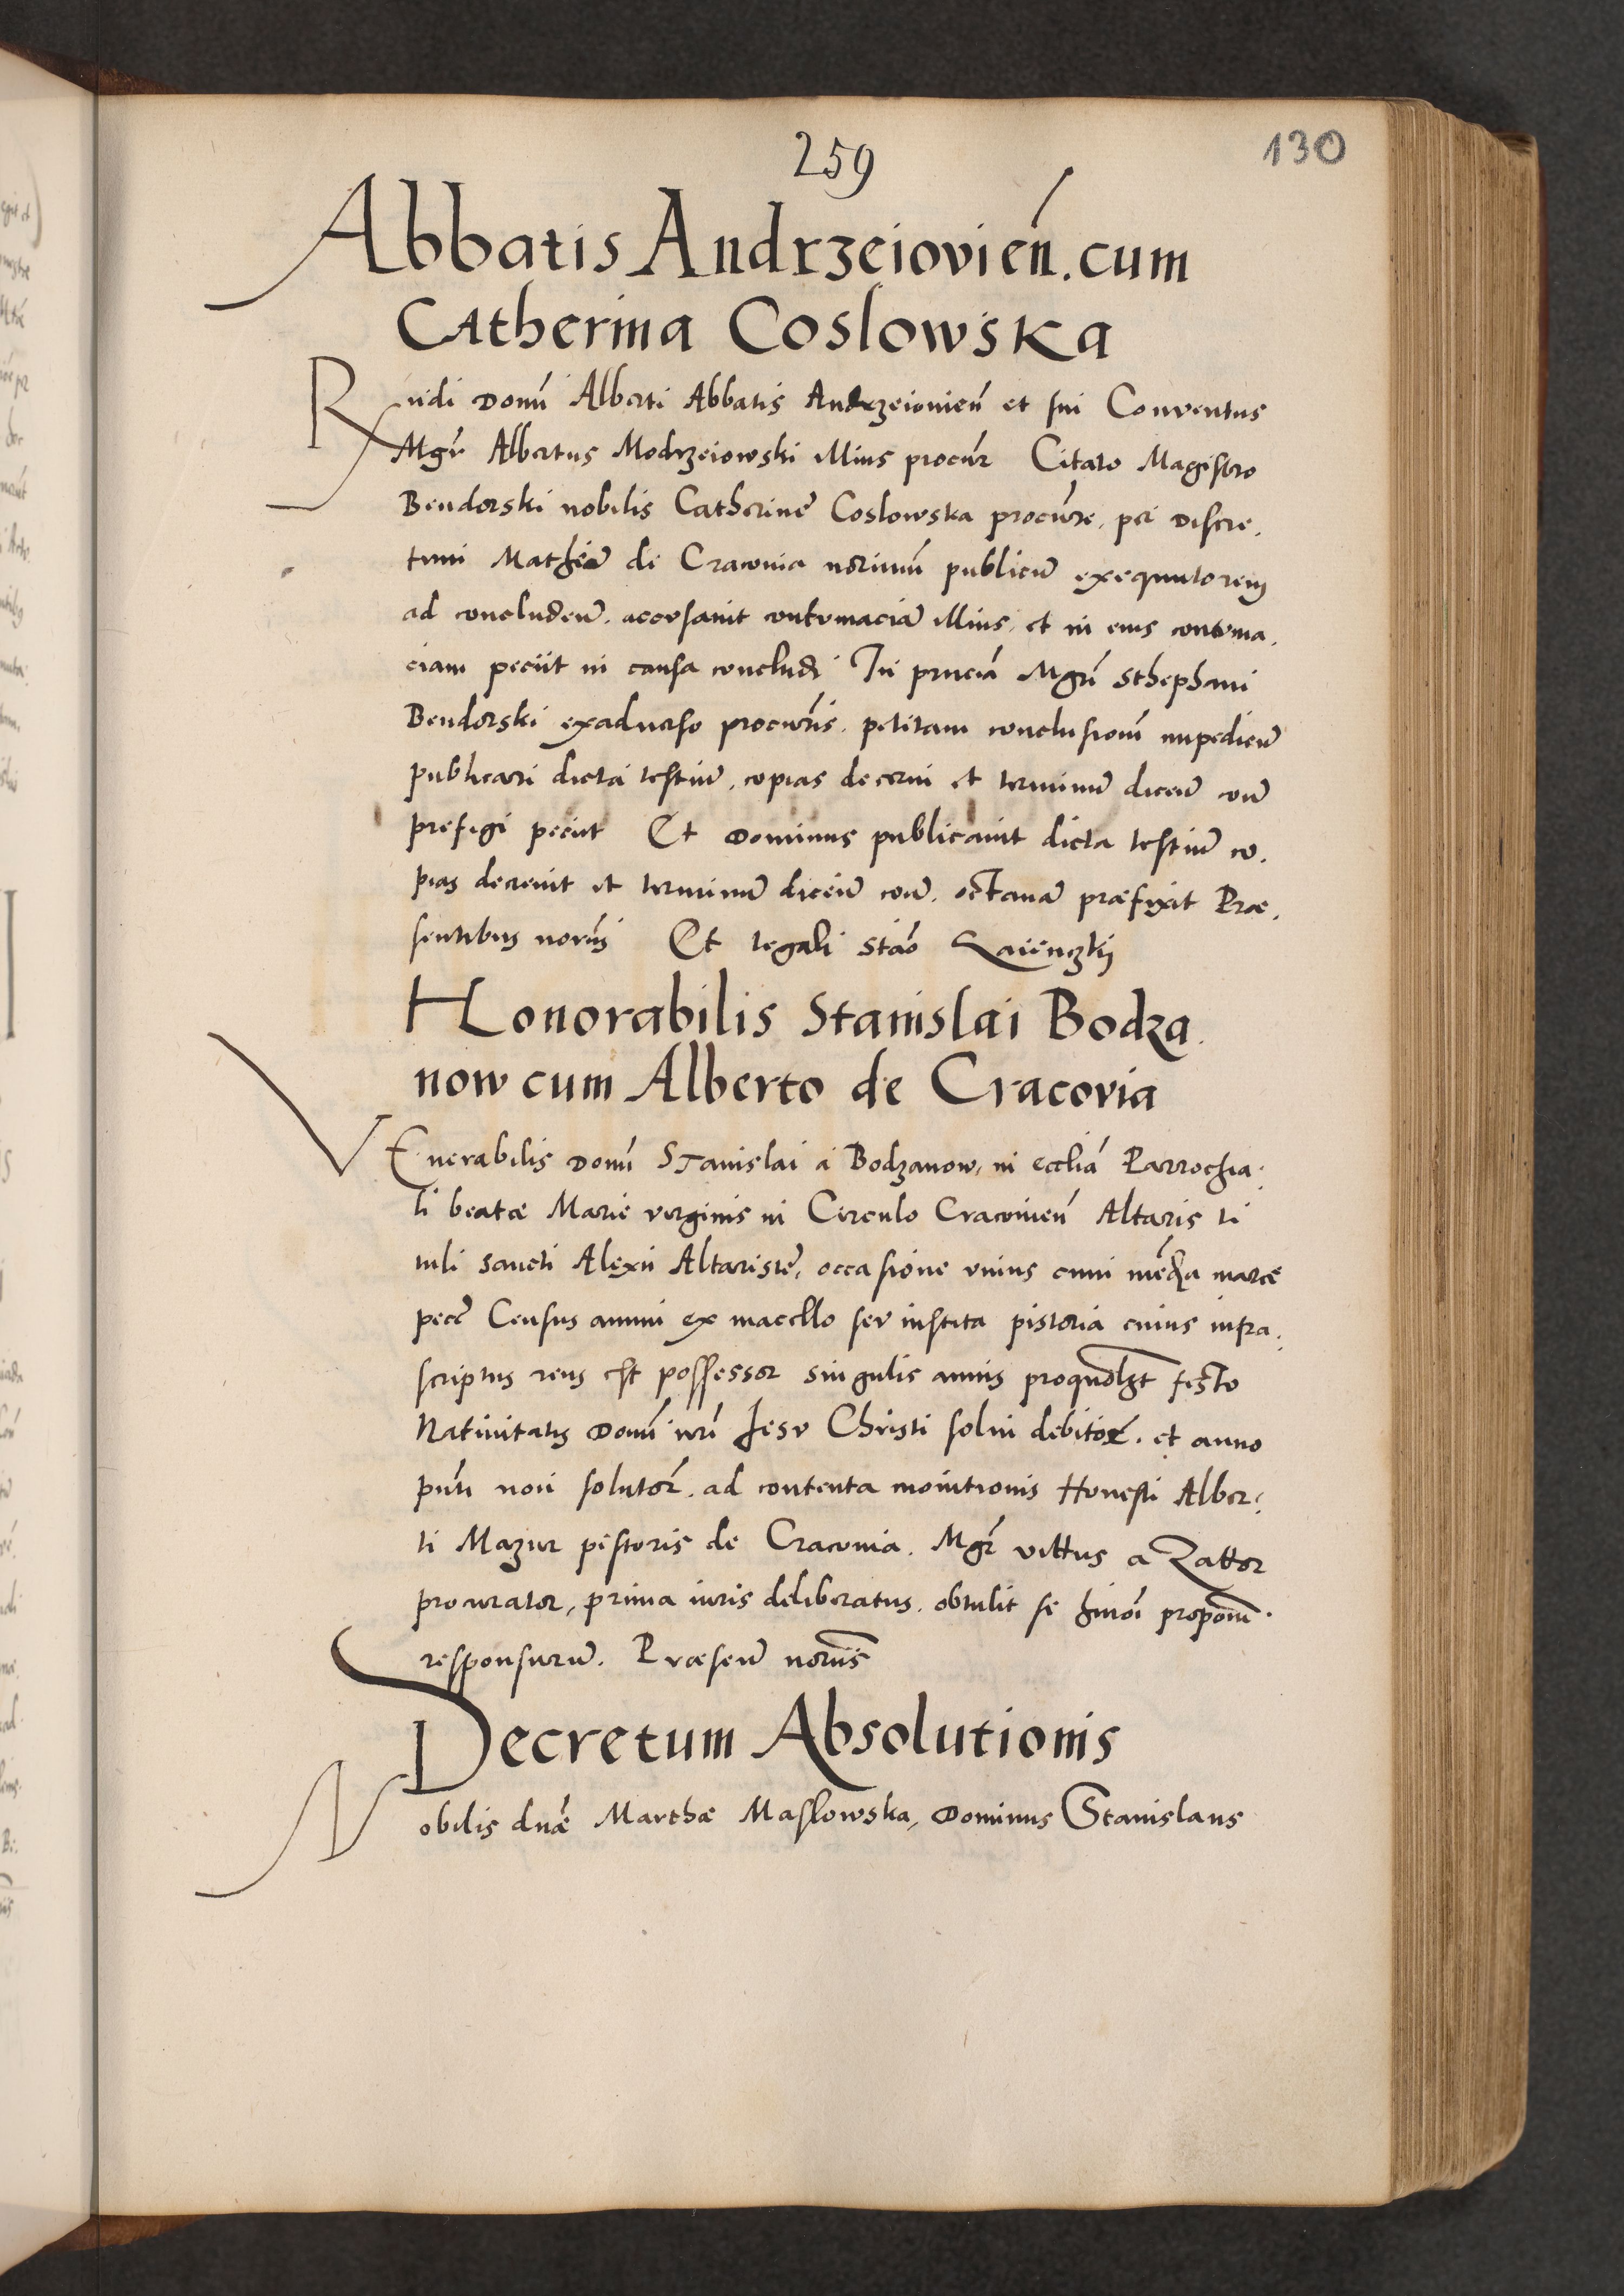 259
130
Abbatis Andrzeiovień. cum
Catherina Coslowska
Rndi Domı̃ Alberti Abbatis Andrzeiouieñ et sui Conventus
Mgr̃ Albertus Modrzeiowski illius procũr Citato Magistro
Bendorski nobilis Catherinæ Coslowska procũre, per discre,
tum Mathiã de Cracouia notriũ publicũ exequutorem
ad concludeñ. accusauit contumaciã illius, et in eius contuma,
ciam peciit in causa concludi In pñcia Mgrĩ Sthephani
Bendorski exaduerso procuris. petitam conclusionẽ impedieñ
publicari dicta testiũ, copias decerni et terminũ diceñ con̄
prefigi peciit Et Dominus publicauit dicta testiũ co,
pias decreuit et terminũ diceñ con̄. octauã præfixit Præ,
sentibus norijs Et legali Stão
Honorabilis Stanislai Bodza,
now cum Alberto de Cracovia
VEnerabilis Domı̃ Stanislai a Bodzanow, in ecclĩa Parrochia,
li beatæ Marie virginis in Circulo Cracouieñ Altaris ti
tuli sancti Alexii Altaristæ, occasione vnius cum media marcæ
pecc̃ Census annui ex maccello seu instita pistoria cuius infra,
scriptus reus est possessor singulis annis pro quolibet festo
Natiuitatis Domı̃ nrĩ Jesu Christi solui debitor̃. et anno
pñti non solutor̃. ad contenta monitionis Honesti Alber,
ti Mazur pistoris de Cracouia. Mgr̃ vittus a Zattor
procurator, prima iuris deliberatus. obtulit se hmõi proponũ.
responsurũ. Præseñ norijs
Decretum Absolutionis
Nobilis dnæ Marthæ Maslowska, Dominus Stanislaus